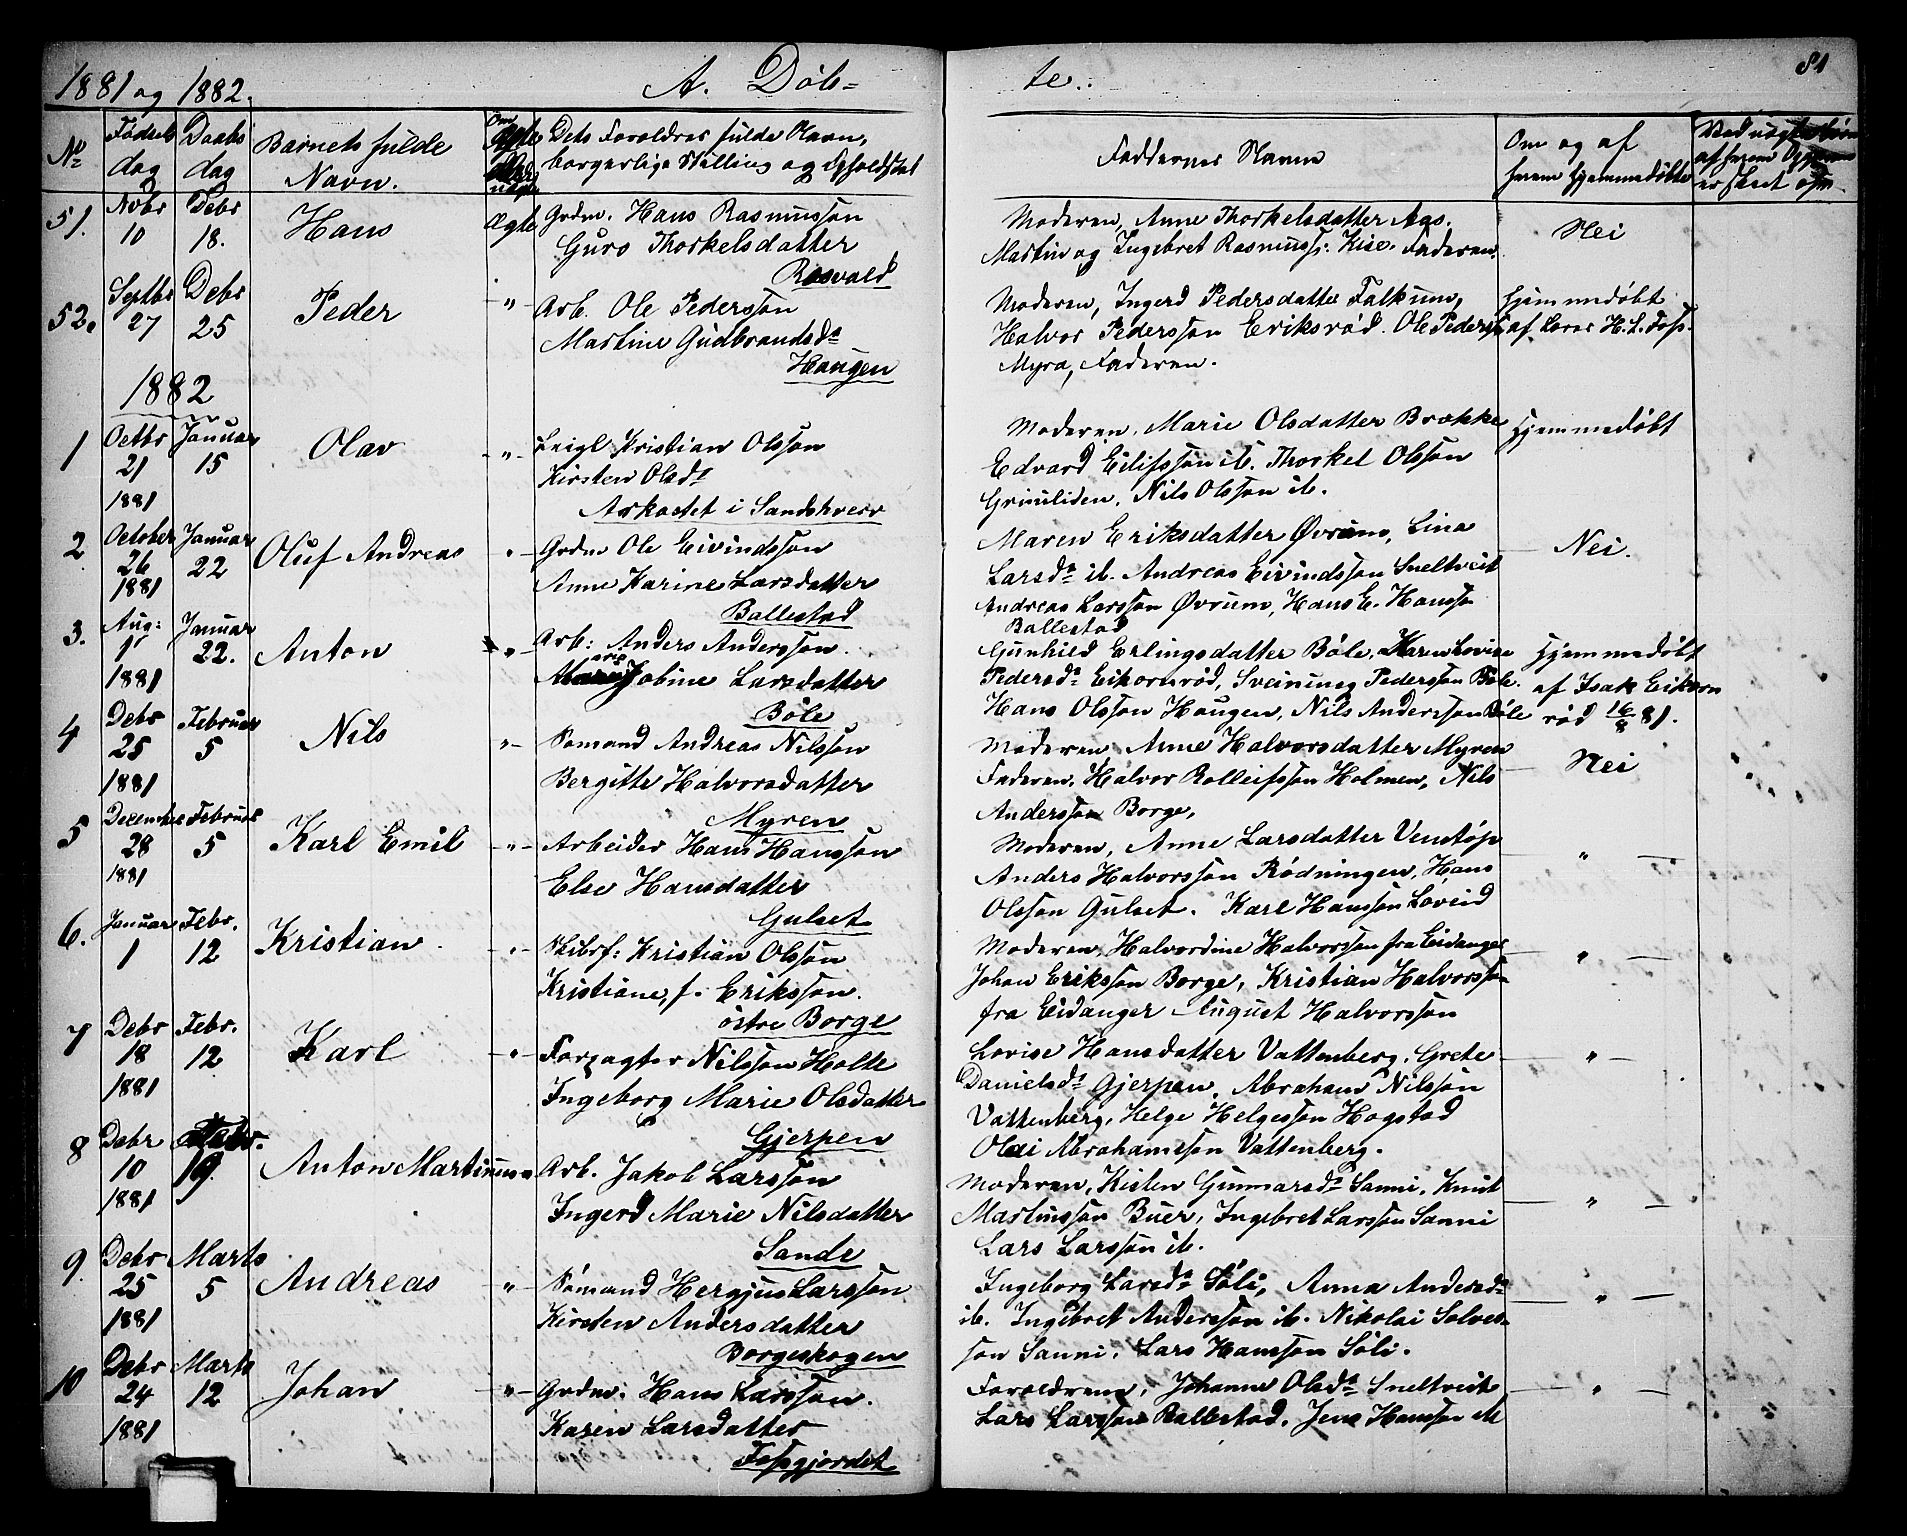 1881 og 1882. A. Döb= te. 81
No Fødsels dag Daabs dag Barnets fulde Navn. Om Ægte eller uægte Dets Foreldres fulde Navn, borgerlige Stilling og Opholdsted Faddernes Navne Om og af hvem hjemmedøbt
51. Novbr 10 Debr 18. Hans Ægte Grdm. Hans Rasmusson
Guro Thorkelsdatter
Rosvald
Moderen, Anne Thorkelsdatter Aas.
Martin og Ingebret Rasmuss: Kise. Faderen.
Nei
52. Septbr 27 Debr 25 Peder " Arb. Ole Pedersson
Martine Gudbrandsdr
Haugen
Moderen, Ingerd Pedersdatter Falkum,
Halvor Pedersson Eriksrød. Ole Pederss
Myra, Faderen.
Hjemmedøbt
af Lærer H. L. Foss.
1882
1 Octbr 21 1881 Januar 15 Olav " Leigl. Kristian Olsson
Kirsten Olsdr
i Sandshverv
Moderen, Marie Olsdatter Brække
Edvard Eilifsson ib. Thorkel Olsson
Grimliden, Nils Olsson ib.
Hjemmedøbt
2 October 26 1881 Januar 22 Oluf Andreas " Grdm Ole Eivindsson
Anne Karine Larsdatter
Ballestad
Maren Eriksdatter Øvrum, Lina
Larsdr ib. Andreas Eivindsson Sneltveit
Andreas Larsson Øvrum, Hans E. Hansson
Ballestad
Nei.
3. Aug: 1881 Januar 22. Anton " Arb: Anders Andersson.
Jobine Larsdatter
Bøle
Gunhild Erlingsdatter Bøle, Karen Lovise
Pedersdr Eikornrød, Sveinung Pedersson Bøle.
Hans Olsson Haugen, Nils Andersson Bøle
Hjemmedøbt
af Isak Eikorn
rød 16/8 81.
4 Debr 25 1881 Februar 5 Nils " Sømand Andreas Nilsson
Bergitte Halvorsdatter
Myren
Moderen, Anne Halvorsdatter Myren
Faderen, Halvor Rolleifsson Holmen, Nils
Andersson Borge,
Nei
5 December 28 1881 Februar 5 Karl Emil " Arbeider Hans Hansson
Else Hansdatter
Gulset
Moderen, Anne Larsdatter Venstøp
Anders Halvorsson Rødningen, Hans
Olsson Gulset. Karl Hansson Løveid
"
6. Januar 1 Febr. 12 Kristian " Skibsf: Kristian Olsson
Kristiane, f. Eriksson.
østre Borge
Moderen, Halvordine Halvorsson fra Eidanger
Johan Eriksson Borge, Kristian Halvorsson
fra Eidanger August Halvorsson
"
7 Debr 18 1881 Febr. 12 Karl " Forpagter Nilsson Holte
Ingeborg Marie Olsdatter
Gjerpen
Lovise Hansdatter Vattenberg, Grete
Danielsdr Gjerpen, Abraham Nilsson
Vattenberg, Helge Helgesson Hogstad
Olai Abrahamsson Vattenberg.
"
8 Debr 10 1881 Febr. 19. Anton Martinus " Arb. Jakob Larsson
Ingerd Marie Nilsdatter
Sande
Moderen, Kisten Gunnarsdr Sanni, Knut
Martinsson Buer, Ingebret Larsson Sanni
Lars Larsson ib.
"
9. Debr 25 1881 Marts 5 Andreas " Sømand Hergjus Larsson
Kirsten Andersdatter
Borgeskogen
Ingeborg Larsdr Søli, Anna Andersdr
ib. Ingebret Andersson ib. Nikolai Solves-
son Sanni, Lars Hansson Søli.
"
10 Debr 24 1881 Marts 12 Johan " Grdm: Hans Larsson.
Karen Larsdatter
Fossgjordet
Foreldrene, Johanne Olsdr Sneltveit
Lars Larsson Ballestad, Jens Hansson ib
"